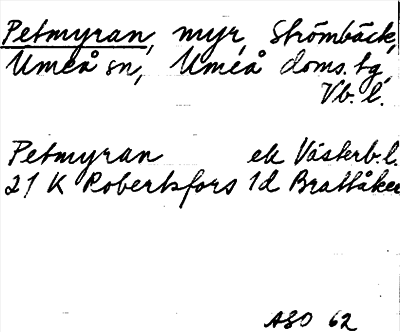 Petmyran, myr, Strömbäck,
Umeå sn, Umeå doms. tg,
Vb. l.
Petmyran ek Västerb. l.
21 K Robertsfors 1d Brattåker
ASO 62